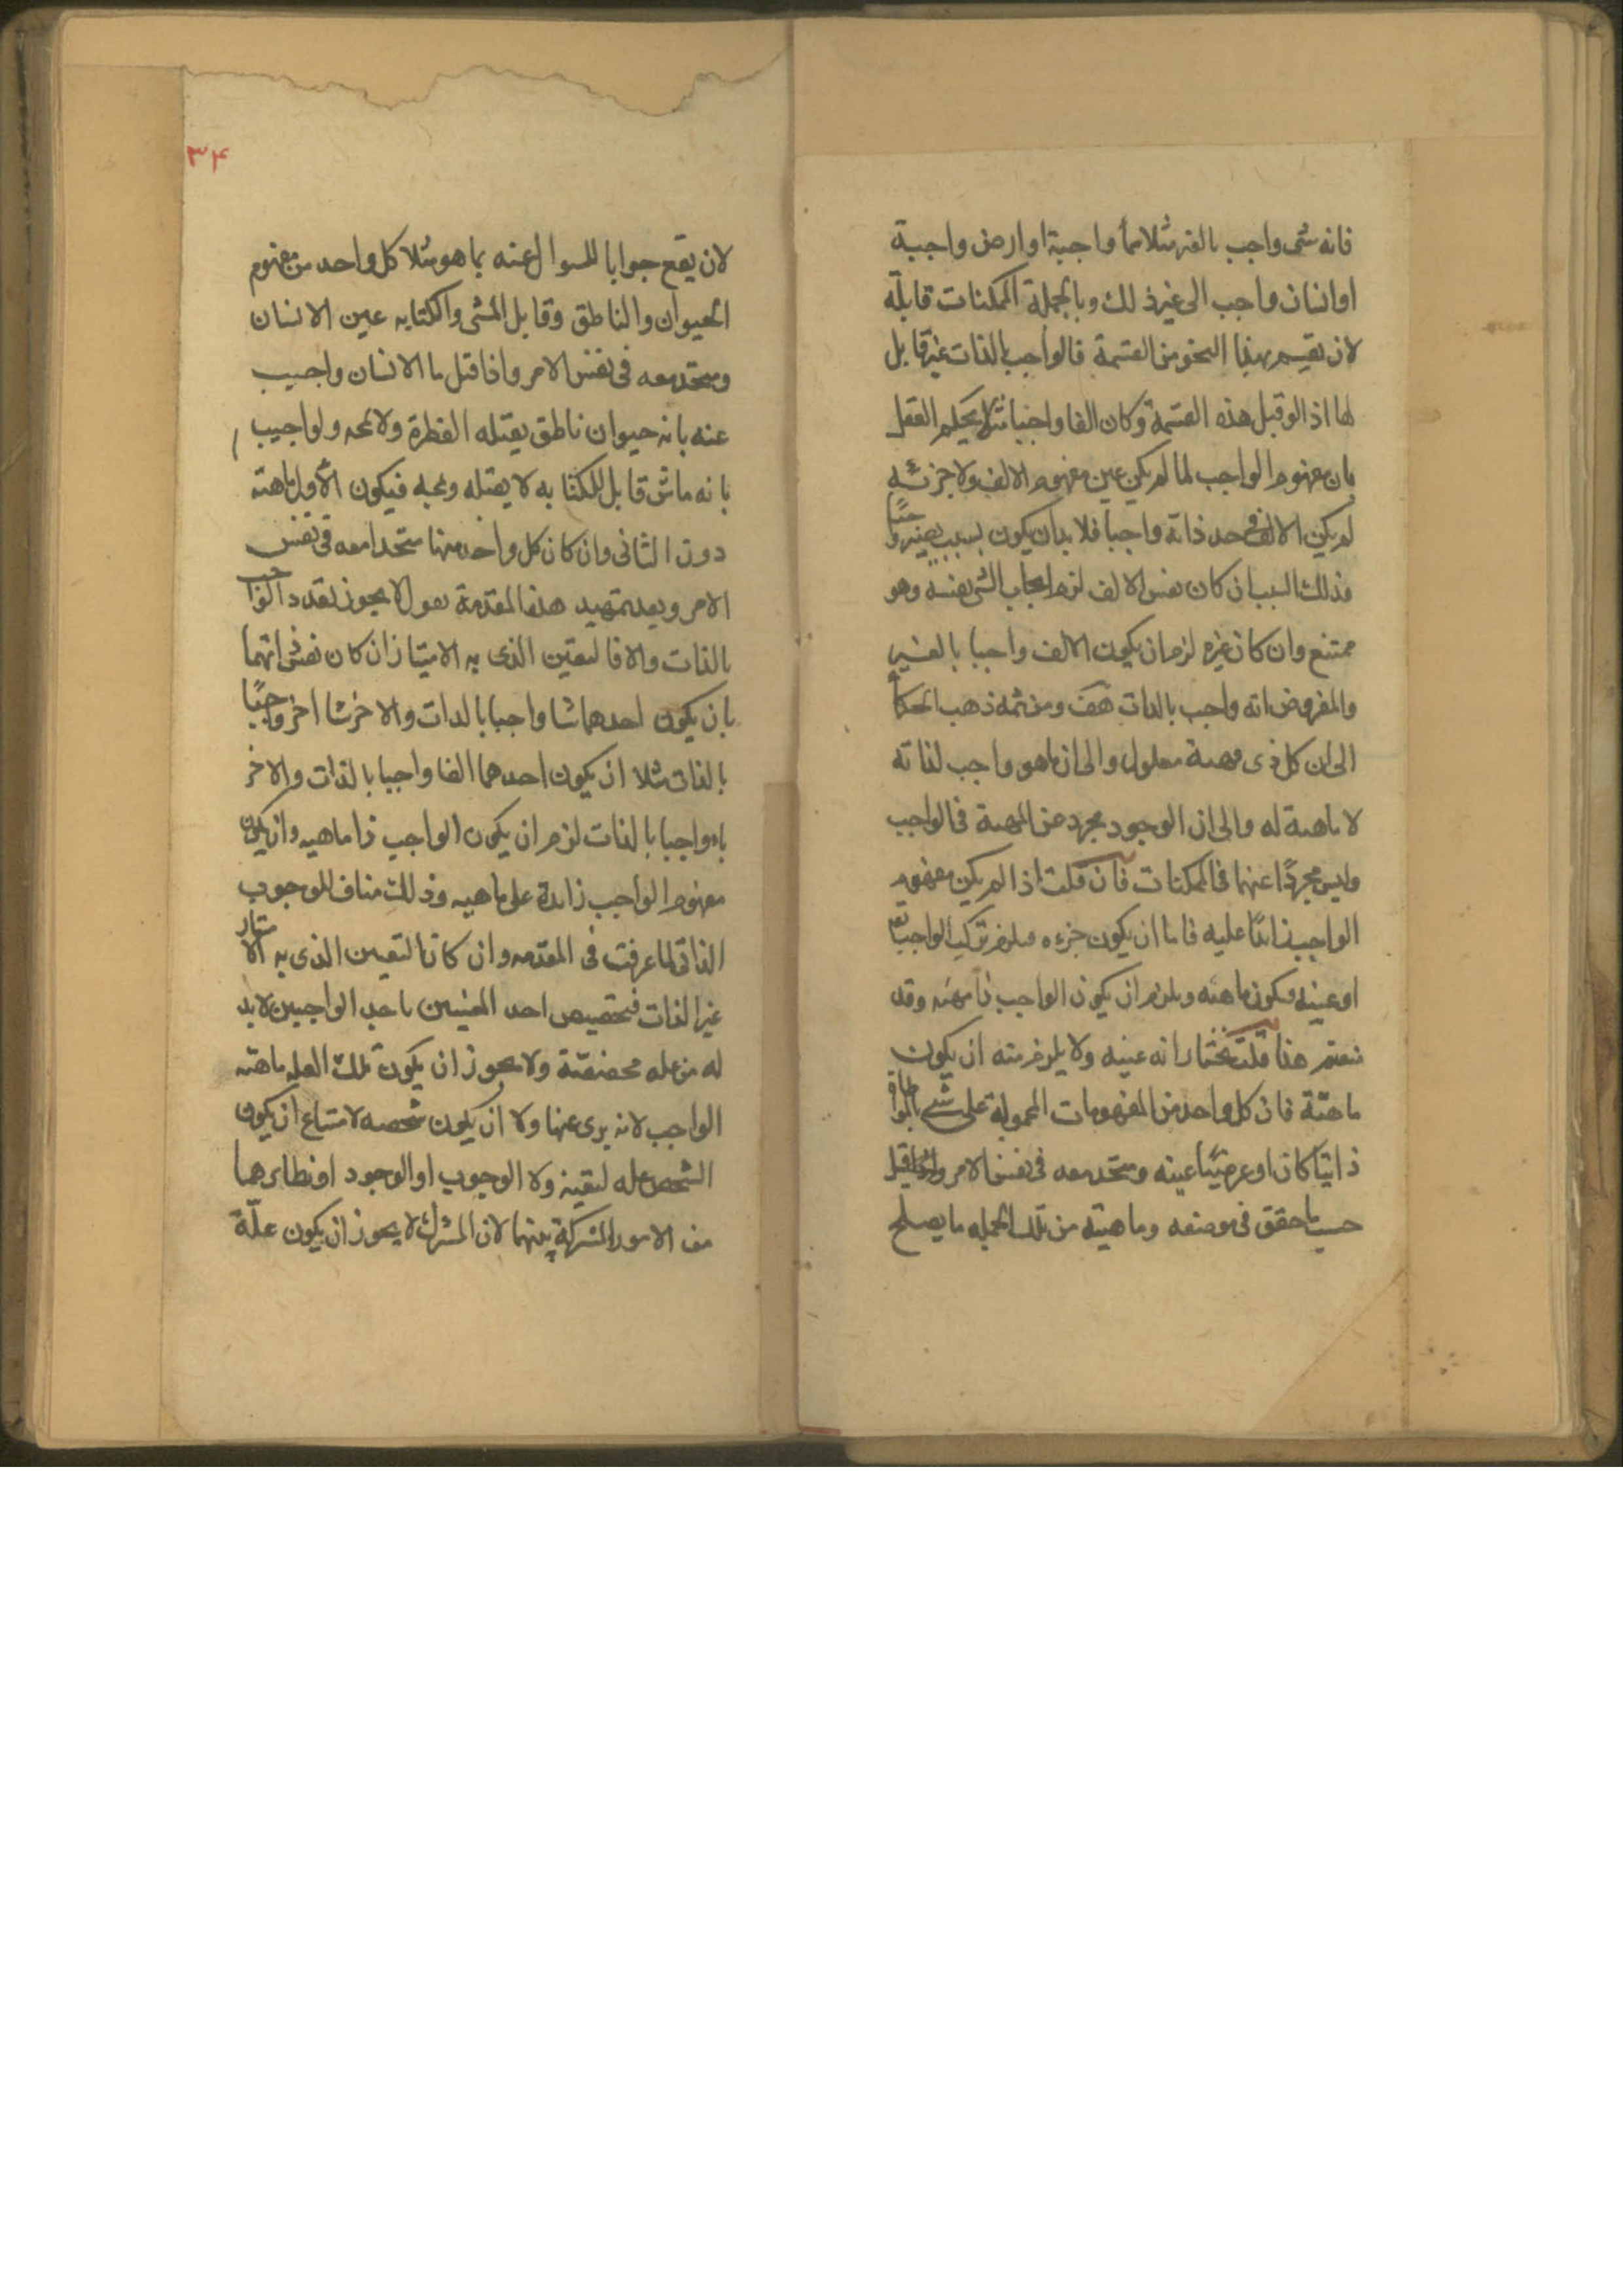 فانه شئ واجب بالغير مثلا سمأ واجبة او ارض واجبة
او انسان واجب الى غير ذلك وبالجملة الممكنات قابلة
لان يقسم بهذا النحو من القسمة فالواجب بالذات غير قابل
لها اذ الو قبل هذه القسمة وكان الفا واجبا مثلا يحكم العقل
بان مفهوم الواجب لما لم يكن عين مفهوم الالف ولا جزئه
لم يكن الالف فى حد ذاته واجبا فلا بد ان يكون بسبب يصيره واجبا
وذلك السبب ان كان نفس الالف لزم ايجاب الشئ نفسه وهو
ممتنع وان كان غيره لزم ان يكون الالف واجبا بالغير
والمفروض انه واجب بالذات هف ومن ثمه ذهب الحكمأ
الى ان كل ذى مهية معلول والى ان ما هو واجب لذاته
لا ماهية له والى ان الوجود مجرد عن المهية فى الواجب
وليس مجردًا عنها فى الممكنات فان قلت اذا لم يكن مفهوم
الواجب زائدًا عليه فاما ان يكون جزءه فيلزم تركيب الواجب تع
او عينه فيكون ماهيته ويلزم ان يكون الواجب ذا مهية وقد
نفيتم هذا قلت نختار انه عينه ولا يلزم منه ان يكون
ماهيّة فان كل واحد من المفهومات المحمولة على شئ بالمواطاة
ذاتيّا كان او عرضيّا عينه ومتحد معه فى نفس الامر قيل
حسب ما حقق فى موضعه وماهيته من تلك الجمله ما يصلح
٣٤
لان يقع جوابا للسوال عنه بما هو مثلا كل واحد من مفهوم
الحيوان والناطق وقابل المشى والكتابه عين الانسان
ومتحد معه فى نفس الامر واذا قيل ما الانسان واجيب
عنه بانه حيوان ناطق يقبله الفطرة ولا يمجه ولو اجيب
بانه ماش قابل للكتابه لا يقبله ويمجه فيكون الأول ماهيته
دون الثانى وان كان كل واحد منهما متحدا معه فى نفس
الامر وبعد تمهيد هذه المقدمة نقول لا يجوز تعدد الواجب
بالذات والا فالتعين الذى به الامتياز ان كان نفس ذاتهما
بان يكون احدهما شا واجبا بالذات والاخر شا اخر واجبًا
بالذات مثلا ان يكون احدهما الفا واجبا بالذات والاخر
باء واجبا بالذات لزم ان يكون الواجب ذا ماهيه وان يكون
مفهوم الواجب زائدة على ماهيه وذلك مناف للوجوب
الذاتى لما عرفت فى المقدمه وان كان التعين الذى به الامتياز
غير الذات فتخصيص احد المعنيين باحد الواجبين لا بد
له من عله مخصّصة ولا يجوز ان يكون تلك العله ماهية
الواجب لانه برى عنها ولا ان يكون شخصه لامتناع ان يكون
الشخص عله لتعينه ولا الوجوب او الوجود او نظائرهما
من الامور المشتركة بينهما لان المشترك لا يجوز ان يكون علّة